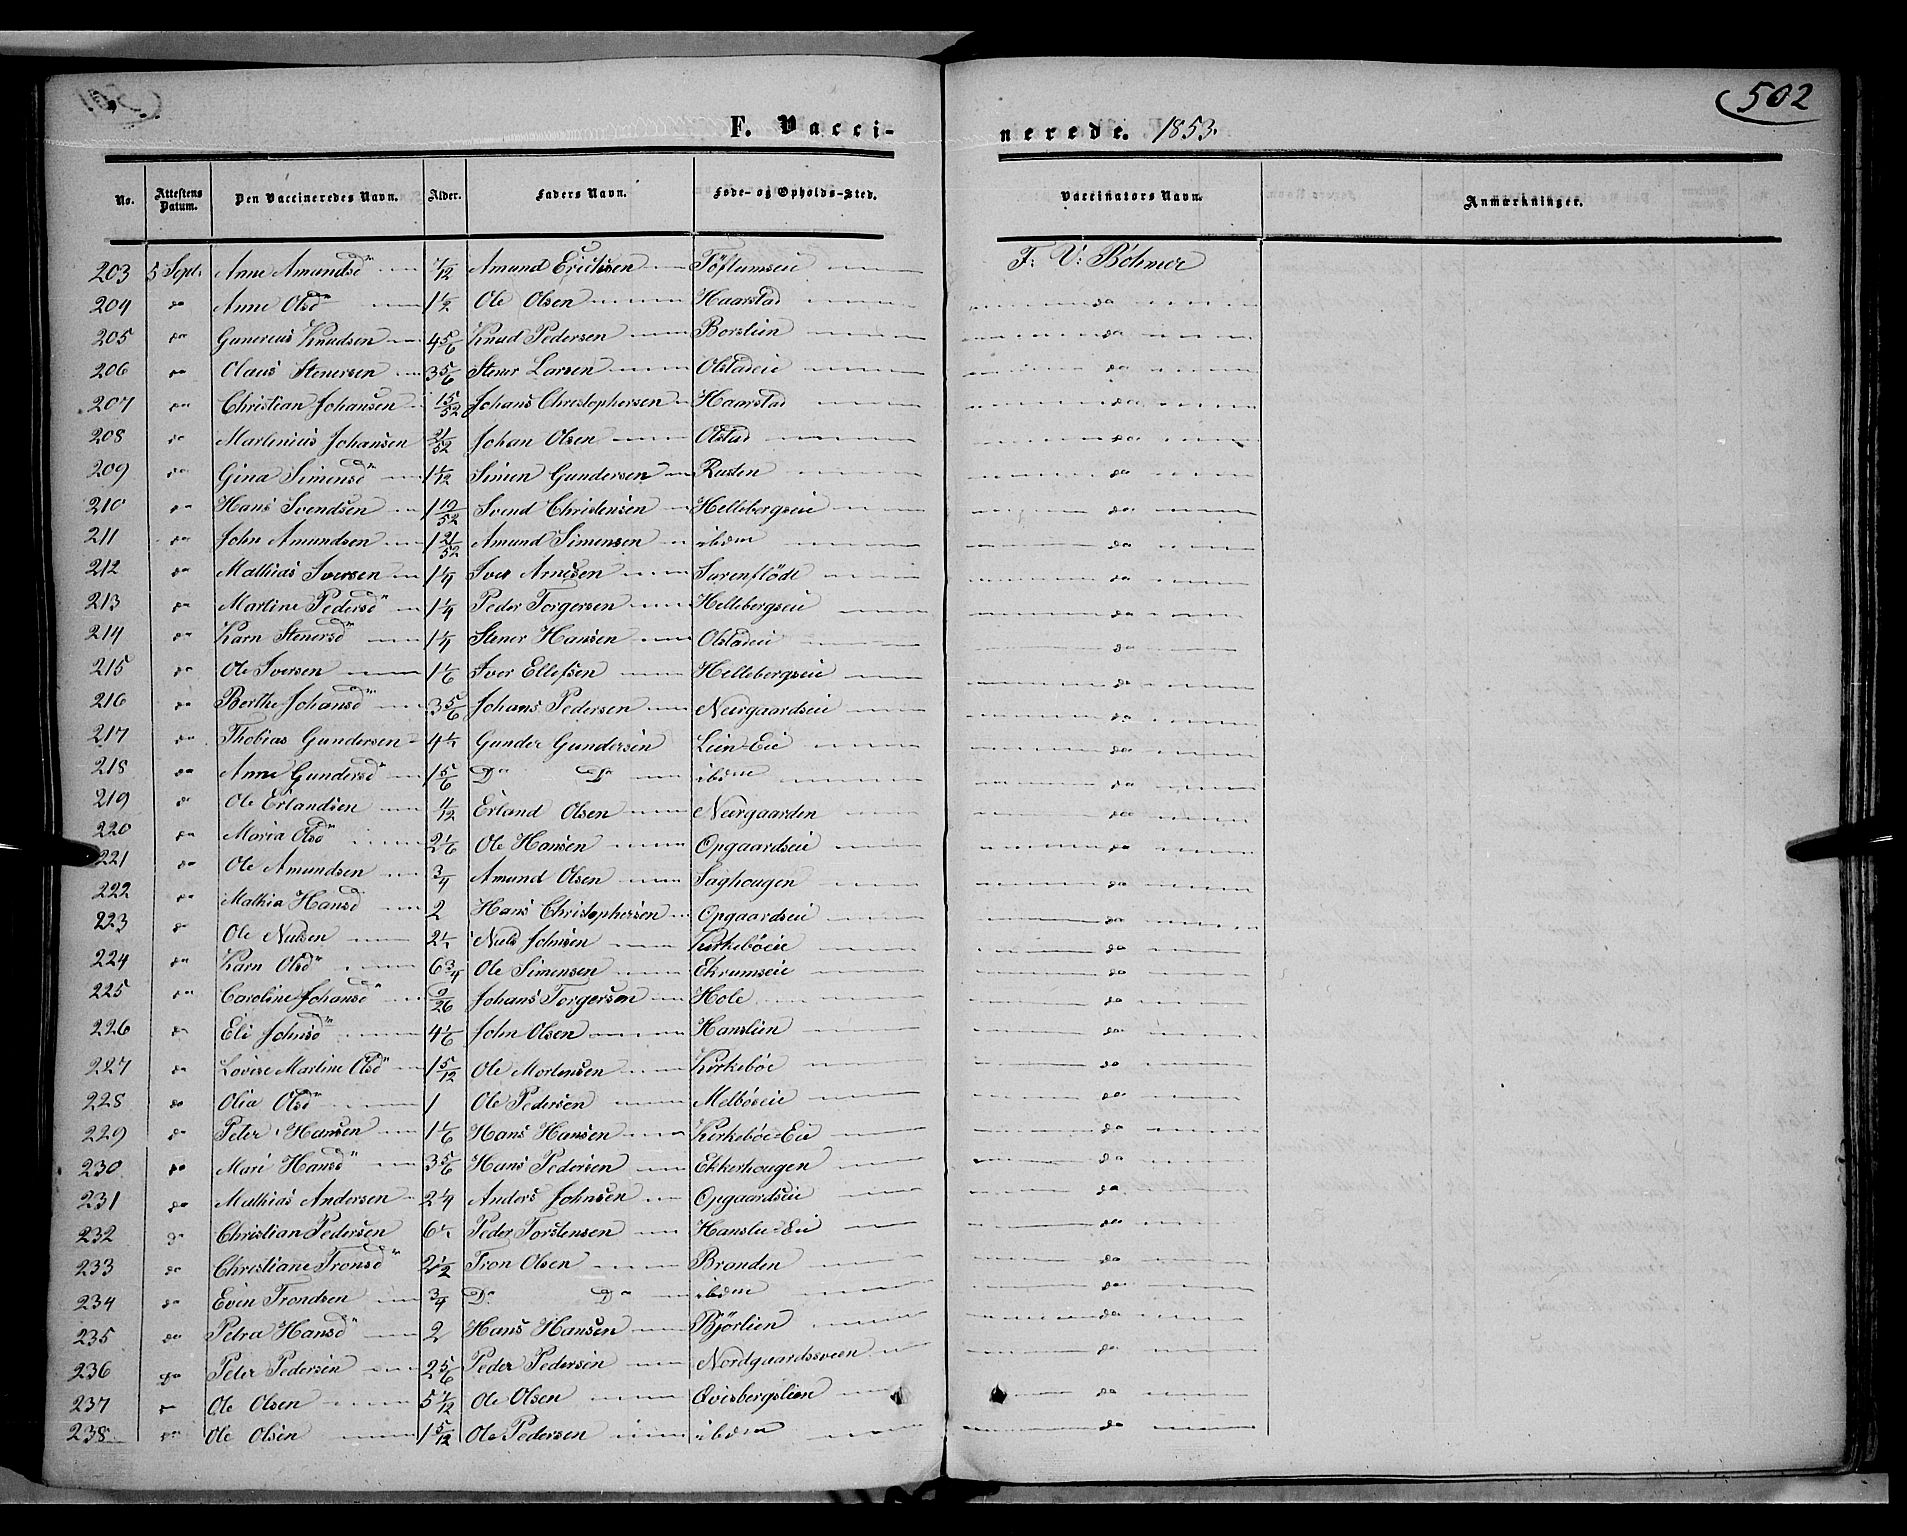 502
F. Vacci-
nerede. 1853.
No. Attestens Datum. Den Vaccineredes Navn. Alder. Faders Navn. Føde- og Opholds-Sted. Vaccinators Navn. Anmærkninger.
203 5 Sept. Anne Amundsd 7/12 Amund Erichsen F: V: Böhmer
204 do Anne Olsd 1 1/2 Ole Olsen Haarstad do
205 do Gunerius Knudsen 4 5/6 Knud Pedersen Borslien do
206 do Olaus Stenersen 3 5/6 Stener Larsen Olstadeie do
207 do Christian Johansen 15/52 Johans Christophersen Haarstad do
208 do Martinius Johansen 21/52 Johan Olsen Olstad do
209 do Gina Simensd 1 1/12 Simen Gundersen Rusten do
210 do Hans Svendsen 1 10/52 Svend Christensen Hellebergseie do
211 do John Amundsen 1 21/52 Amund Simensen ibdm do
212 do Mathias Iversen 1 1/4 Iver Arnesen do
213 do Martine Pedersd 1 1/4 Peder Torgersen Hellebergseie do
214 do Karn Stenersd 1 1/4 Stener Hansen Olstadeie do
215 do Ole Iversen 1 1/6 Iver Ellefsen Hellebergseie do
216 do Berthe Johansd 3 5/6 Johans Pedersen Neergaardseie do
217 do Thobias Gundersen 4 1/2 Gunder Gundersen Lien-Eie do
218 do Anne Gundersd 1 5/6 Do Do ibdm do
219 do Ole Erlandsen 4/12 Erland Olsen Neergaarden do
220 do Maria Olsd 2 1/6 Ole Hansen Opgaardseie do
221 do Ole Amundsen 3/4 Amund Olsen Saghougen do
222 do Mathia Hansd 2 Hans Christophersen Opgaardseie do
223 do Ole Nielsen 2 1/2 Niels Johnsen Kirkebøeie do
224 do Karn Olsd 6 3/4 Ole Simensen Ekrumseie do
225 do Caroline Johansd 9/26 Johans Torgersen Hole do
226 do Eli Johnsd 4 1/6 John Olsen Hanslien do
227 do Lovise Martine Olsd 1 5/12 Ole Mortensen Kirkebøe do
228 do Olia Olsd 1 Ole Pedersen Melbøseie do
229 do Peter Hansen 1 1/6 Hans Hansen Kirkebøe-Eie do
230 do Mari Hansd 3 5/6 Hans Pedersen Ekkerhougen do
231 do Mathias Andersen 2 1/4 Anders Johnsen Opgaardseie do
232 do Christian Pedersen 6 1/2 Peder Torstensen Hanslie-Eie do
233 do Christiane Tronsd 2 1/2 Tron Olsen Branden do
234 do Even Trondsen 3/4 Do Do ibdm do
235 do Petra Hansd 2 Hans Hansen Bjørlien do
236 do Peter Pedersen 2 5/6 Peder Pedersen Nordgaardssveen do
237 do Ole Olsen 5 1/12 Ole Olsen Qvisbergslien do
238 do Ole Olsen 1 5/12 Ole Pedersen ibdm do